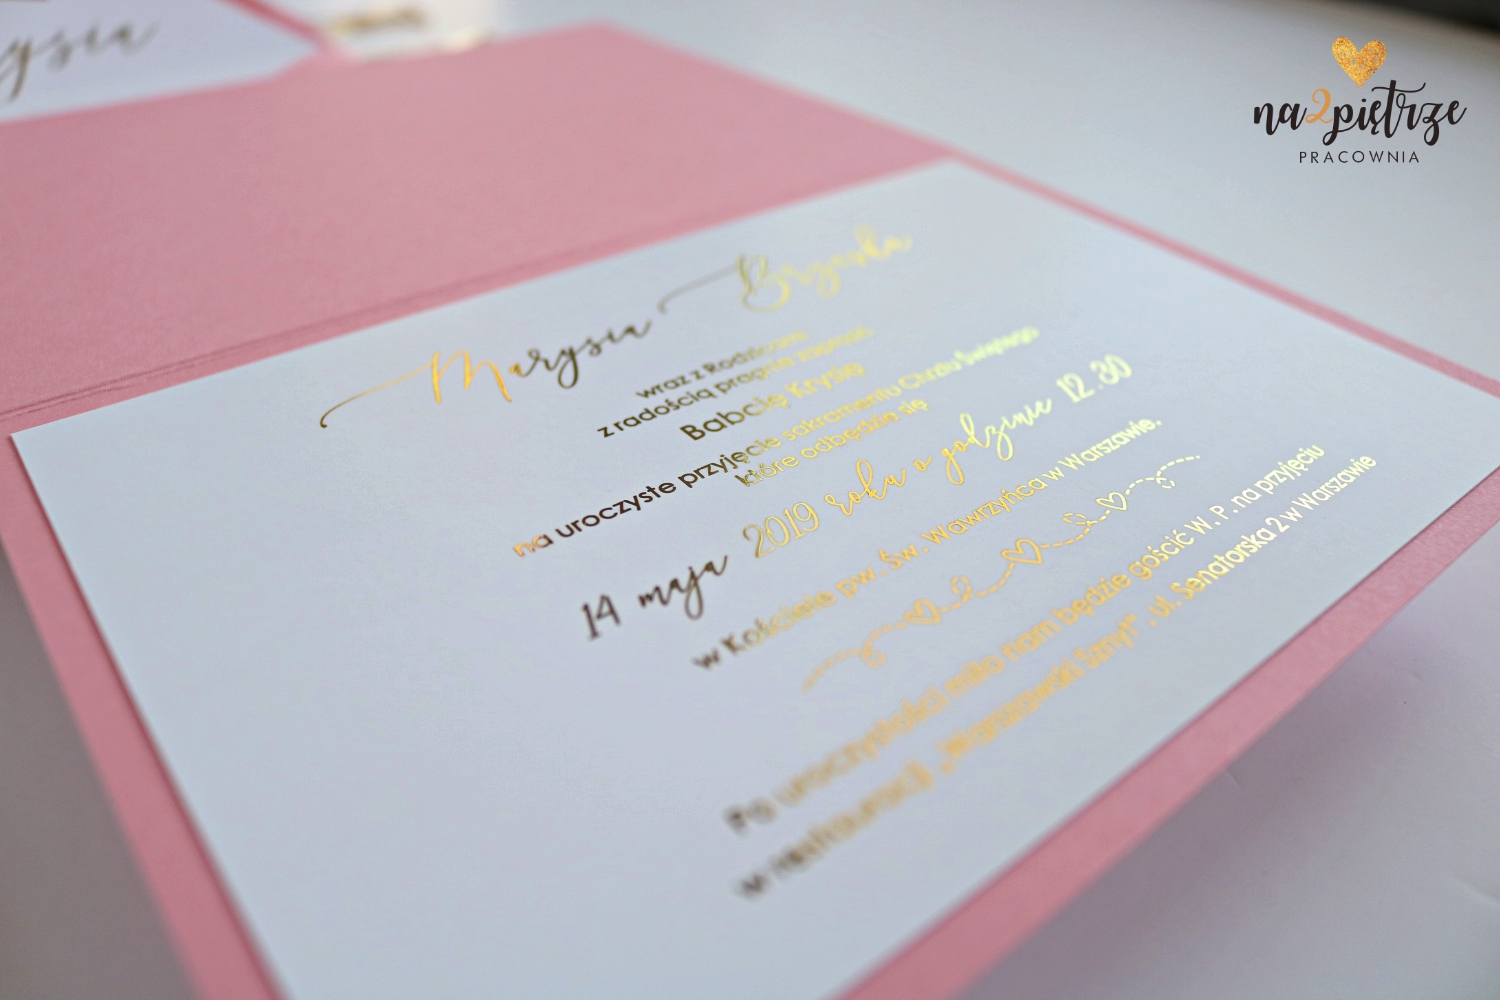 rysia
na2piętrze
PRACOWNIA
Marysia Brzeska
wraz z Rodzicami
z radością pragnie zaprosić
Babcię Krysię
na uroczyste przyjęcie sakramentu Chrztu Świętego
które odbędzie się
14 maja 2019 roku o godzinie 12.30
w Kościele pw. Św. Wawrzyńca w Warszawie.
Po uroczystości miło nam będzie gościć W. P. na przyjęciu
w restauracji „Warszawski Sznyt", ul. Senatorska 2 w Warszawie